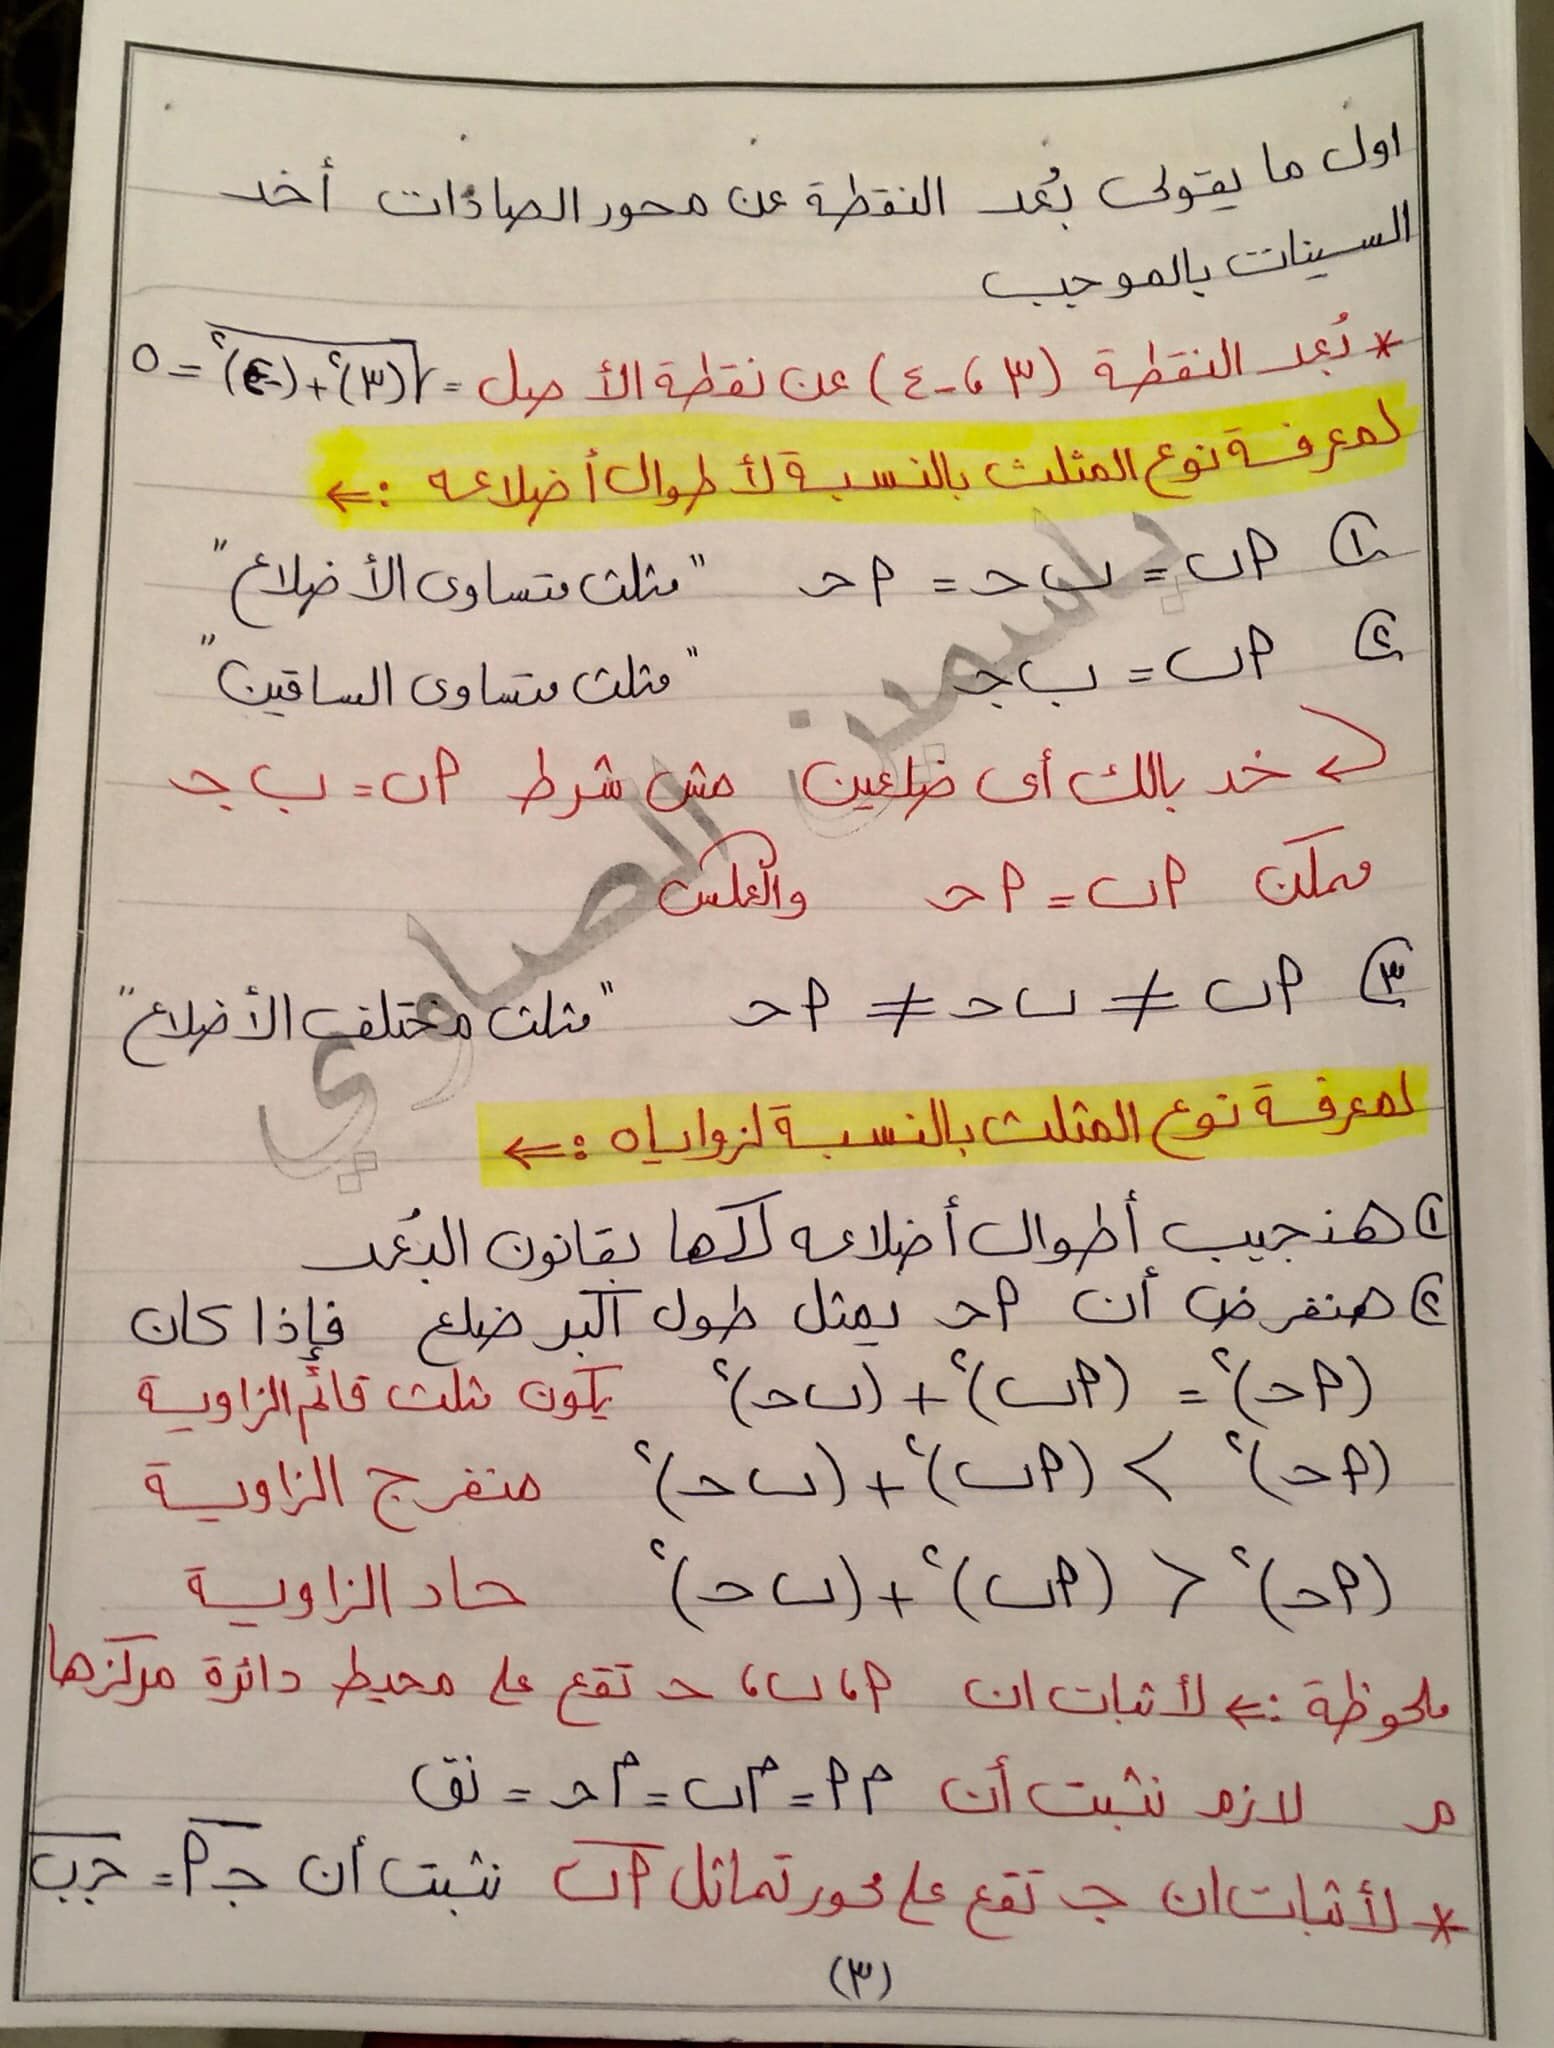 اول ما يقولى بُعد النقطة عن محور الصادات أخد
السينات بالموجب
* بُعد النقطة (٣ ، -٤) عن نقطة الأصل = √(٣)² + (-٤)² = ٥
لمعرفة نوع المثلث بالنسبة لأطوال أضلاعه :←
① أب = ب ح = أ ح "مثلث متساوى الأضلاع"
② أب = ب ج "مثلث متساوى الساقين"
خد بالك أى ضلعين مش شرط أب = ب ج
ممكن أب = أ ح والعكس
③ أب ≠ ب ح ≠ أ ح "مثلث مختلف الأضلاع"
لمعرفة نوع المثلث بالنسبة لزواياه :←
① هنجيب أطوال أضلاعه كلها بقانون البُعد
② هنفرض أن أ ح يمثل طول اكبر ضلع فإذا كان
(أ ح)² = (أب)² + (ب ح)² يكون مثلث قائم الزاوية
(أ ح)² > (أب)² + (ب ح)² منفرج الزاوية
(أ ح)² < (أب)² + (ب ح)² حاد الزاوية
ملحوظة :← لأثبات ان أ ، ب ، ح تقع على محيط دائرة مركزها
م لازم نثبت أن م أ = م ب = م ح = نق
* لأثبات ان ج تقع على محور تماثل أب نثبت أن ج أ = ج ب
(٣)
ياسمين الصاوي